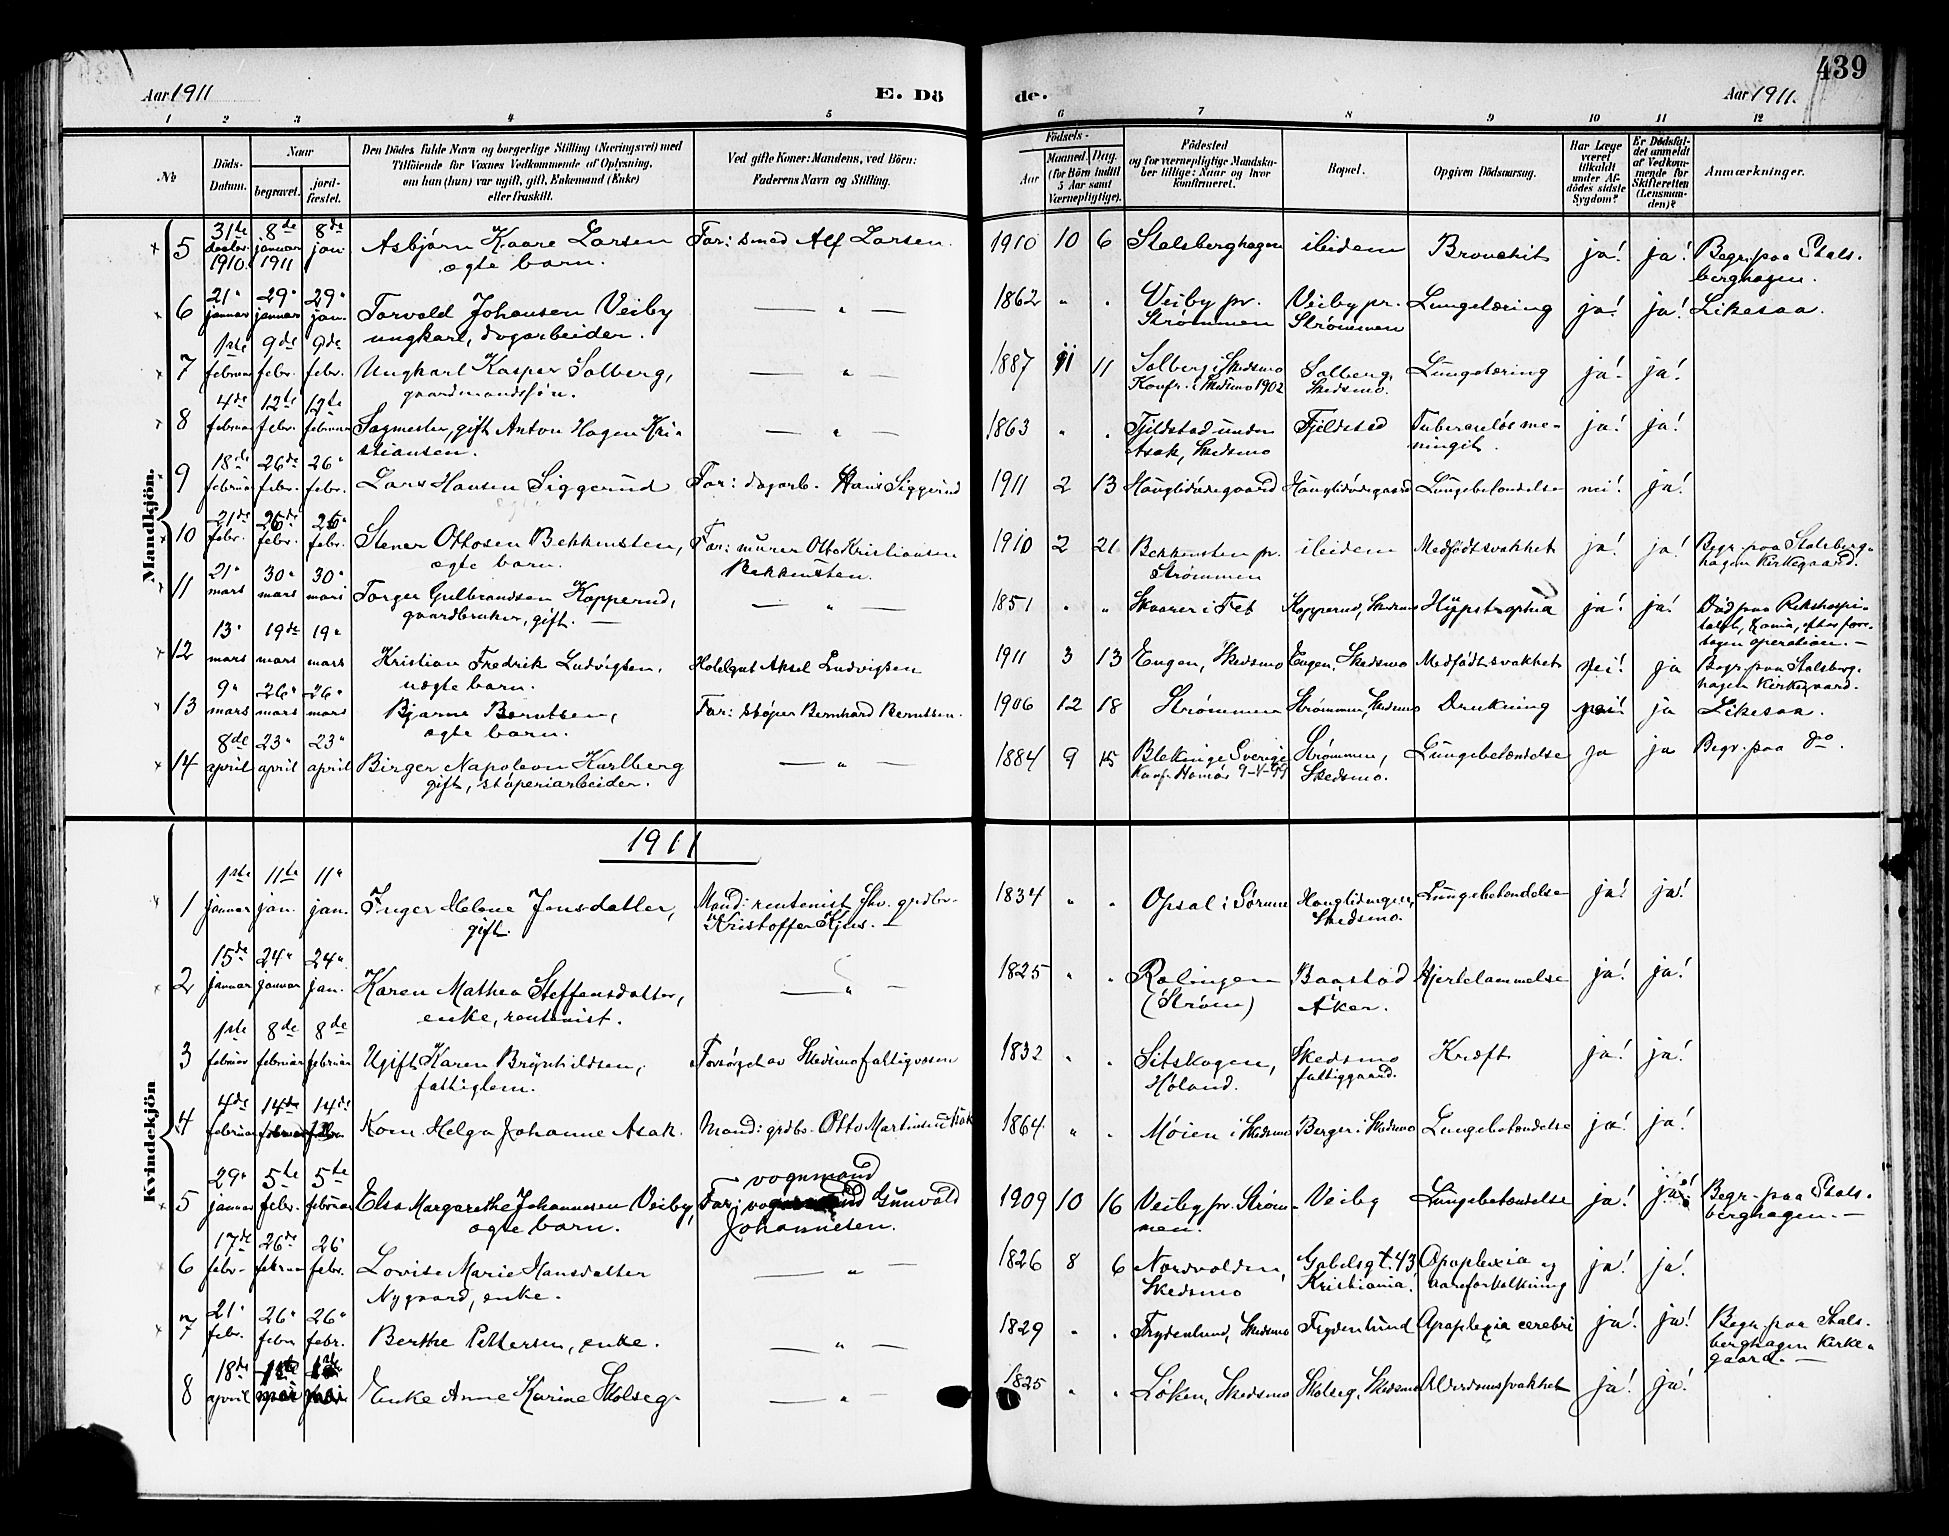 439
Aar 1911
E. Dö
de.
Aar 1911.
1 2 3 4 5 6 7 8 9 10 11 12
№
Döds-Datum.
Naar
begravet.
jord-fæstet.
Den Dödes fulde Navn og borgerlige Stilling (Næringsvei) med
Tilföiende for Voxnes Vedkommende af Oplysning,
om han (hun) var ugift, gift, Enkemand (Enke)
eller fraskilt.
Ved gifte Koner: Mandens, ved Börn:
Faderens Navn og Stilling.
Födsels-
Aar
Maaned. Dag.
(for Börn indtil
5 Aar samt
Værnepligtige).
Födested
og for værnepligtige Mandska-
ber tillige: Naar og hvor
konfirmeret.
Bopæl.
Opgiven Dödsaarsag.
Har Læge
været
tilkaldt
under Af-
dödes sidste
Sygdom?
Er Dödsfal-
det anmeldt
af Vedkom-
mende for
Skifteretten
(Lensman-
den)?
Anmærkninger.
Mandkjön.
5 31te decbr. 1910 8de januar 1911 8de jan. Asbjørn Kaare Larsen ægte barn. Far: smed Alf Larsen. 1910 10 6 Stalsberghagen ibidem Bronchit ja! ja! Begr. paa Stalsberghagen.
6 21" januar 29" januar 29" jan. Torvald Johansen Veiby ungkarl, dagarbeider. — " — 1862 " " Veiby pr. Strømmen Veiby pr. Strømmen Lungetæring ja! ja! Likesaa.
7 1ste februar 9de febr. 9de febr. Ungkarl Kasper Solberg, gaardmandssøn. — " — 1887 11 11 Solberg i Skedsmo Konfr. i Skedsmo 1902 Solberg, Skedsmo. Lungetæring ja! ja!
8 4de februar 12te febr. 12te februar Sagmester, gift Anton Hagen Kristiansen. — " — 1863 " " Fjeldstad under Asak, Skedsmo Fjeldstad Tuberculøs meningit. ja! ja!
9 18de februar 26de febr. 26" febr. Lars Hansen Siggerud Far: dagarb. Hans Siggerud 1911 2 13 Haugliødegaard Haugliødegaard Lungebetændelse nei! ja!
10 21de febr. 26de febr. 26" febr. Stener Ottosen Bekkensten, ægte barn. Far: murer Otto Kristiansen Bekkensten. 1910 2 21 Bekkensten pr. Strømmen ibidem Medfødt svakhet ja! ja! Begr. paa Stalsberghagen Kirkegaard.
11 21" mars 30" mars 30" mars Torger Gulbrandsen Kopperud, gaardbruker, gift. — " — 1851 " " Skaarer i Fet Kopperud, Skedsmo ja! ja! Død paa Rikshospitalet, Kania, efter foretagen operation.—
12 13" mars 19de mars 19" mars Kristian Fredrik Ludvigsen, uægte barn. Hotelgut Aksel Ludvigsen 1911 3 13 Engen, Skedsmo Engen, Skedsmo Medfødt svakhet nei! ja Begr. paa Stalsberghagen Kirkegaard.
13 9" mars 26" mars 26" mars Bjarne Berntsen, ægte barn. Far: støper Bernhard Berntsen. 1906 12 18 Strømmen Strømmen, Skedsmo Drukning nei! ja Likesaa.
14 8de april 23" april 23" april Birger Napoleon Karlberg gift, støperiarbeider. — " — 1884 9 15 Blekinge Sverige Strømmen, Skedsmo. Lungebetændelse ja ja Begr. paa do.
1911
Kvindekjön
1 1ste januar 11te jan. 11" jan. Inger Helene Jensdatter, gift. Mand: rentenist fhv. grdbr. Kristoffer Kjus. — 1834 " " Opsal i Sørum Skedsmo. Lungebetændelse ja! ja!
2 15de januar 24" januar 24" jan. Karen Mathea Steffensdatter, enke, rentenist. — " — 1825 " " Rælingen (Strøm) Baastad Aker. Hjertelammelse ja! ja!
3 1ste februar 8de februar 8de februar Ugift Karen Brynhildsen, fattiglem. Forsørget av Skedsmo fattigvæsen 1832 " " Sitskogen, Høland. Skedsmo fattiggaard. Kræft ja! ja!
4 4de februar 14de februar 14de Kone Helga Johanne Asak. Mand: grdbr. Otto Martinsen Asak 1864 " " Moien i Skedsmo Berger i Skedsmo Lungebetændelse ja! ja!
5 29" januar 5te febr. 5te februar Elsa Margarethe Johannesen Veiby, ægte barn. Far: vognmand Gunvald Johannesen. 1909 10 16 Veiby pr. Strømmen. Veiby Lungebetændelse ja! ja! Begr. paa Stalsberghagen.—
6 17de febr. 26de februar 26" febr. Lovise Marie Hansdatter Nygaard, enke. — " — 1826 8 6 Nordvolden, Skedsmo Gabelsgt. 43 Kristiania. Apoplexia og aareforkalkning ja! ja!
7 21" febr. 26" febr. 26" febr. Berthe Pettersen, enke. — " — 1829 " " Frydenlund, Skedsmo Frydenlund Apoplexia cerebri ja! ja! Begr. paa Stalsberghagen Kirkegaard.—
8 18de april 1ste mai 1ste mai Enke Anne Karine Skolseg. — " — 1825 " " Løken, Skedsmo Skolseg, Skedsmo Alderdomssvakhet ja! ja!